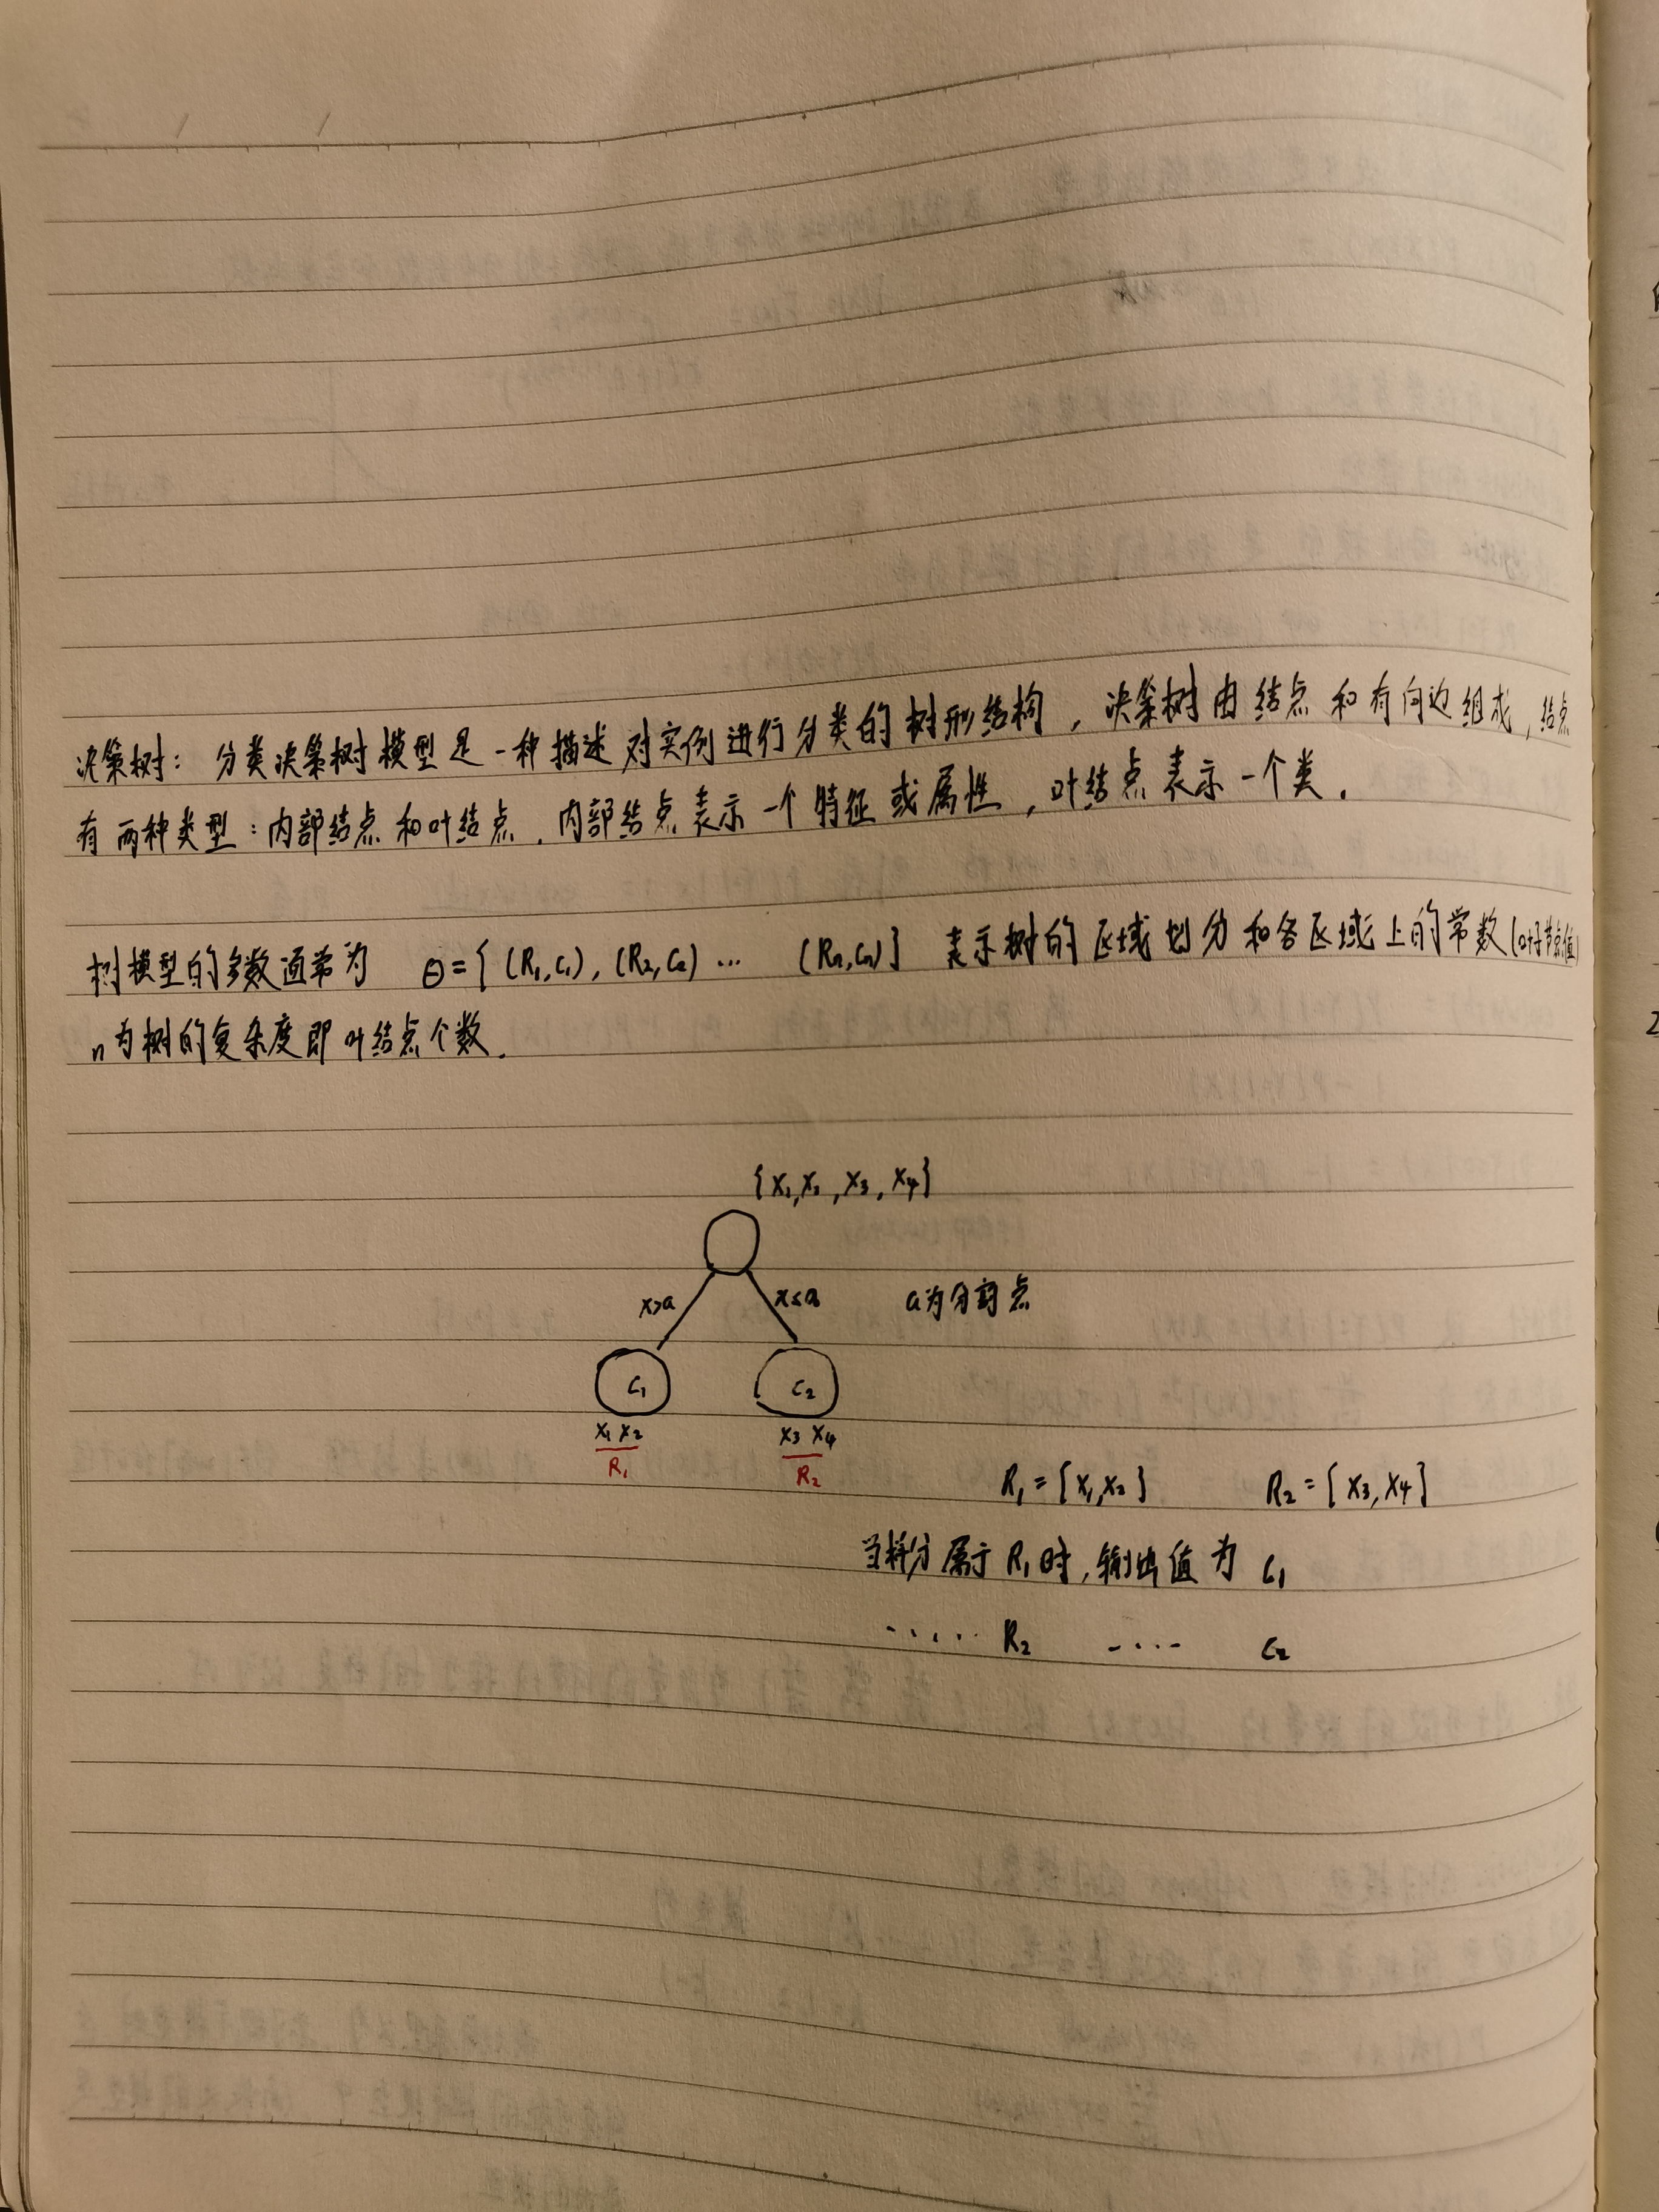 决策树：分类决策树模型是一种描述对实例进行分类的树形结构，决策树由结点和有向边组成，结点
有两种类型：内部结点和叶结点．内部结点表示一个特征或属性，叶结点表示一个类．
树模型的参数通常为 θ={(R₁,C₁),(R₂,C₂)… (Rn,Cn)} 表示树的区域划分和各区域上的常数(叶子节点值)
n为树的复杂度即叶结点个数．
{X₁,X₂,X₃,X₄}
X>a X≤a a为分割点
C₁ C₂
X₁ X₂ X₃ X₄
R₁ R₂
R₁={X₁,X₂} R₂={X₃,X₄}
当样本属于R₁时,输出值为 C₁
····· R₂ ···· C₂